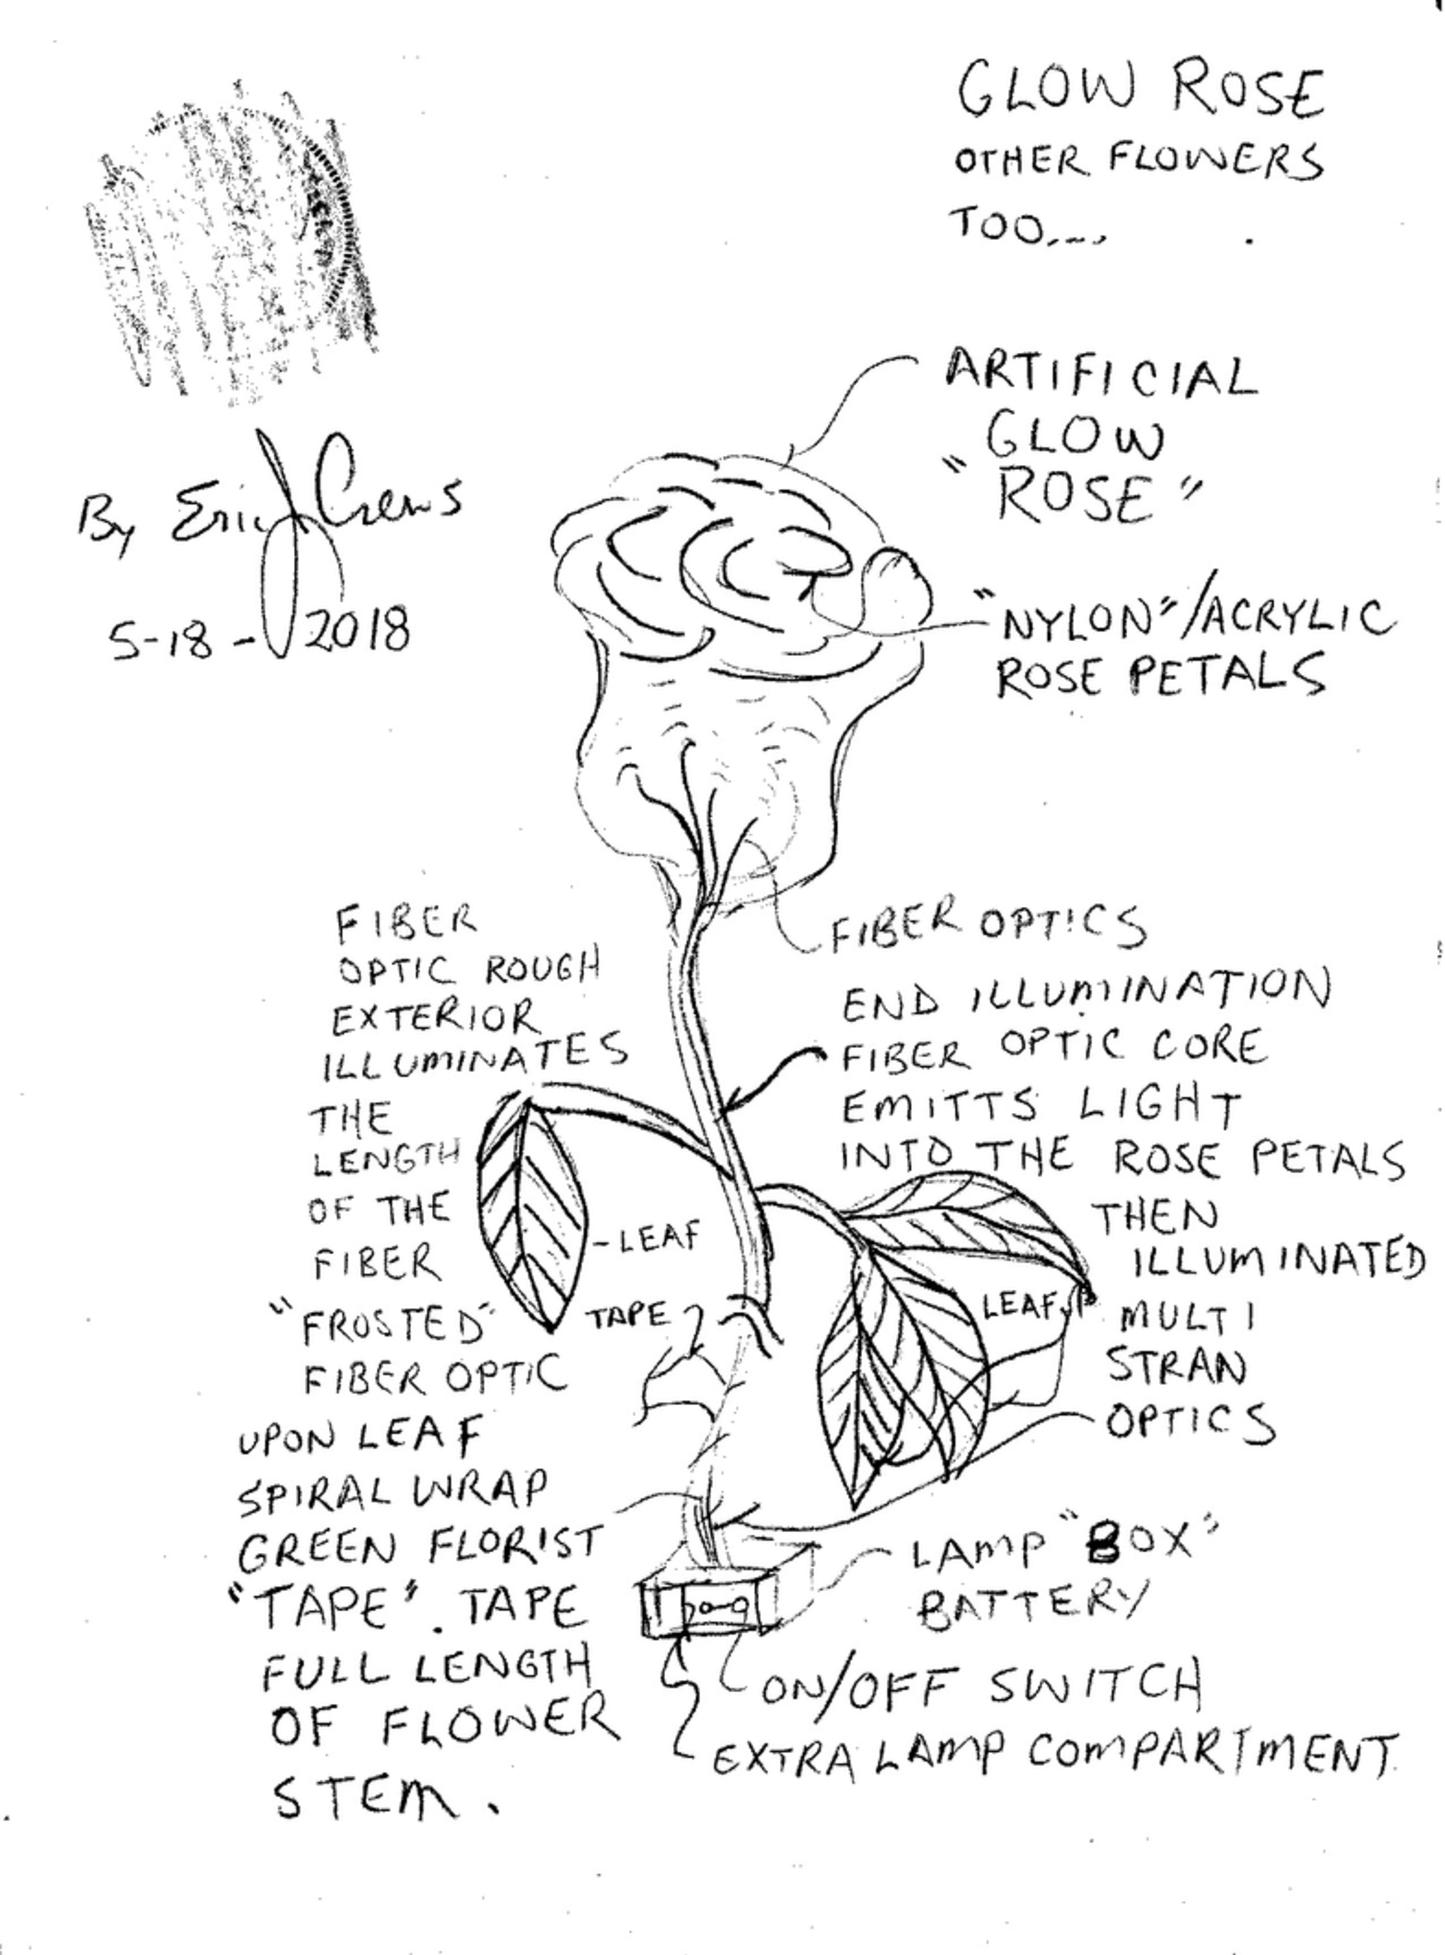 GLOW ROSE
OTHER FLOWERS
TOO....
ARTIFICIAL
GLOW
"ROSE"
By Eric J Crews
5-18-2018
"NYLON"/ACRYLIC
ROSE PETALS
FIBER
OPTIC ROUGH
EXTERIOR
ILLUMINATES
THE
LENGTH
OF THE
FIBER
"FROSTED"
FIBER OPTIC
UPON LEAF
SPIRAL WRAP
GREEN FLORIST
"TAPE". TAPE
FULL LENGTH
OF FLOWER
STEM.
FIBER OPTICS
END ILLUMINATION
FIBER OPTIC CORE
EMITTS LIGHT
INTO THE ROSE PETALS
THEN
ILLUMINATED
MULTI
STRAN
OPTICS
-LEAF
TAPE
LEAF
LAMP "BOX"
BATTERY
ON/OFF SWITCH
EXTRA LAMP COMPARTMENT